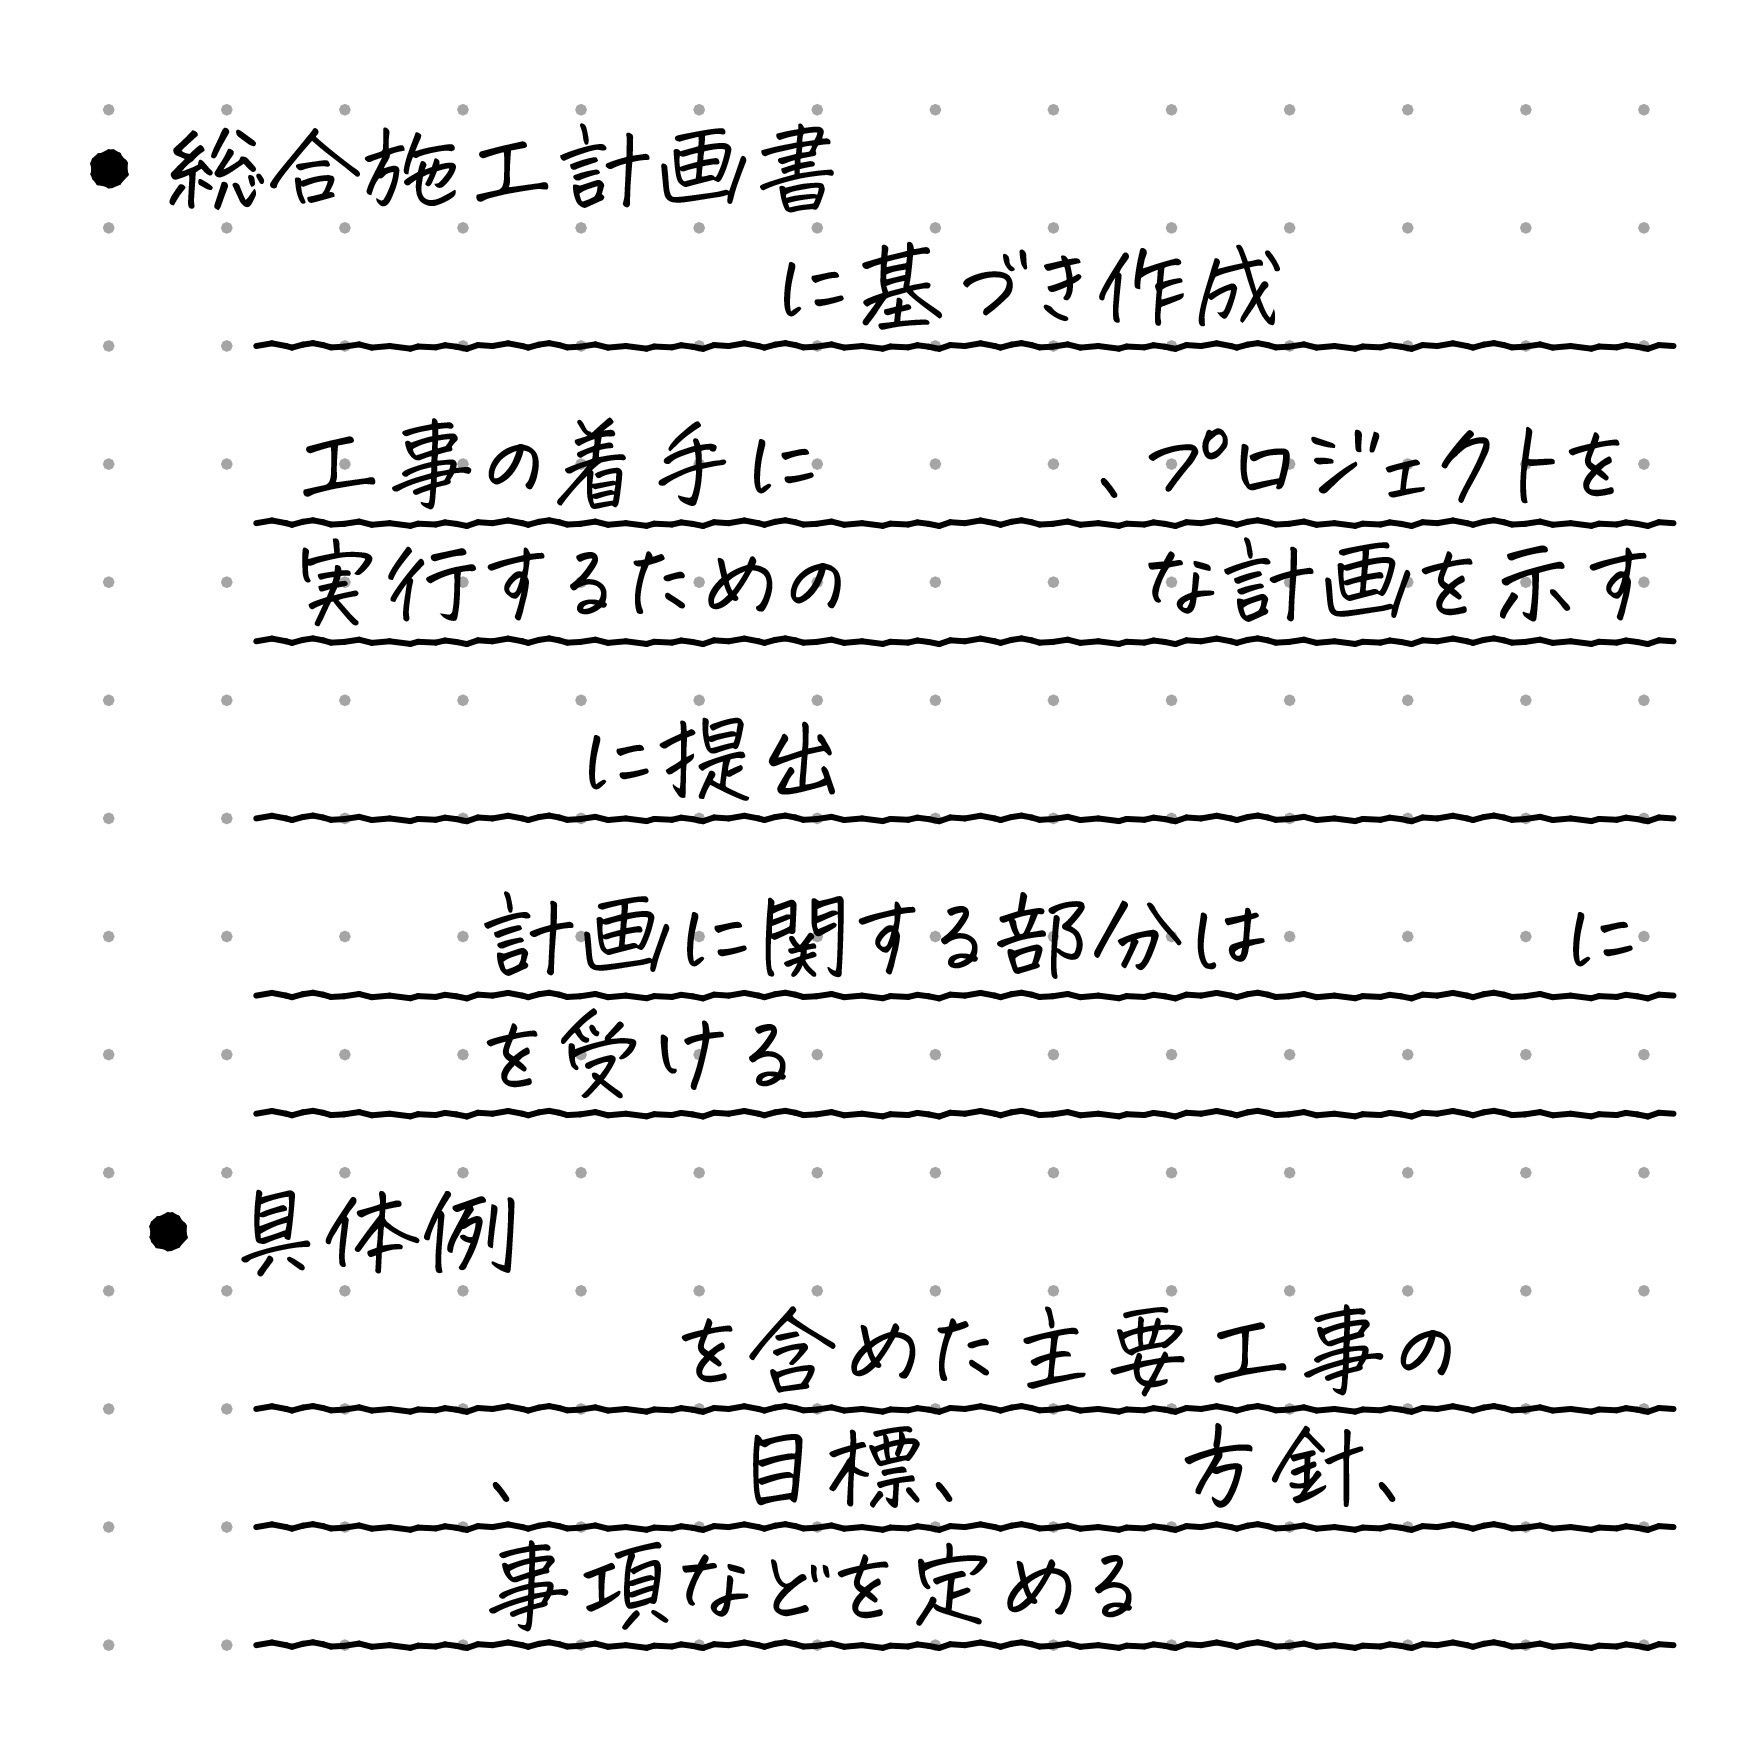 ● 総合施工計画書
に基づき作成
工事の着手に　　　、プロジェクトを
実行するための　　　な計画を示す
に提出
計画に関する部分は　　　に
を受ける
● 具体例
を含めた主要工事の
、　　目標、　　方針、
事項などを定める